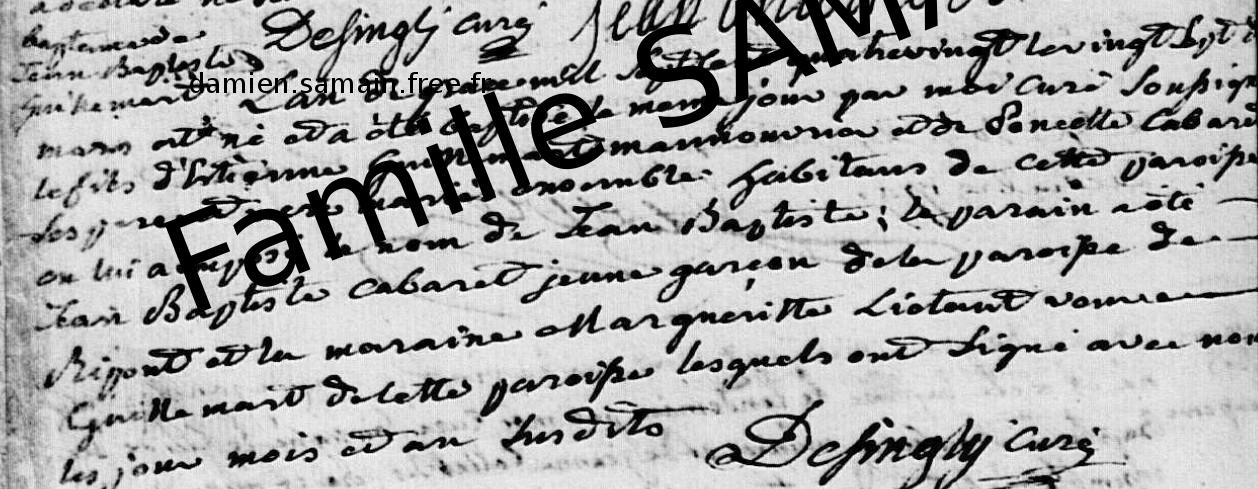 Desingly curé
baptemede
Jean Baptiste
damien.samain.free.fr
Famille SAMA
L'an de grace mil sept cent quatrevingt le vingt sept de
mars est né et a été baptisé le meme jour par moi curé soussigné
le fils d'Etienne Guillemart manouvrier et de Poncette Cabaret
ses pere et mere mariés ensemble habitans de cette paroisse
on lui a imposé le nom de Jean Baptiste; le parain a été
Jean Baptiste Cabaret jeune garçon de la paroisse de
Ripont et la maraine Margueritte Liotard veuve
Guillemart de cette paroisse lesquels ont signé avec nous
les jour mois et an susdits
Desingly curé